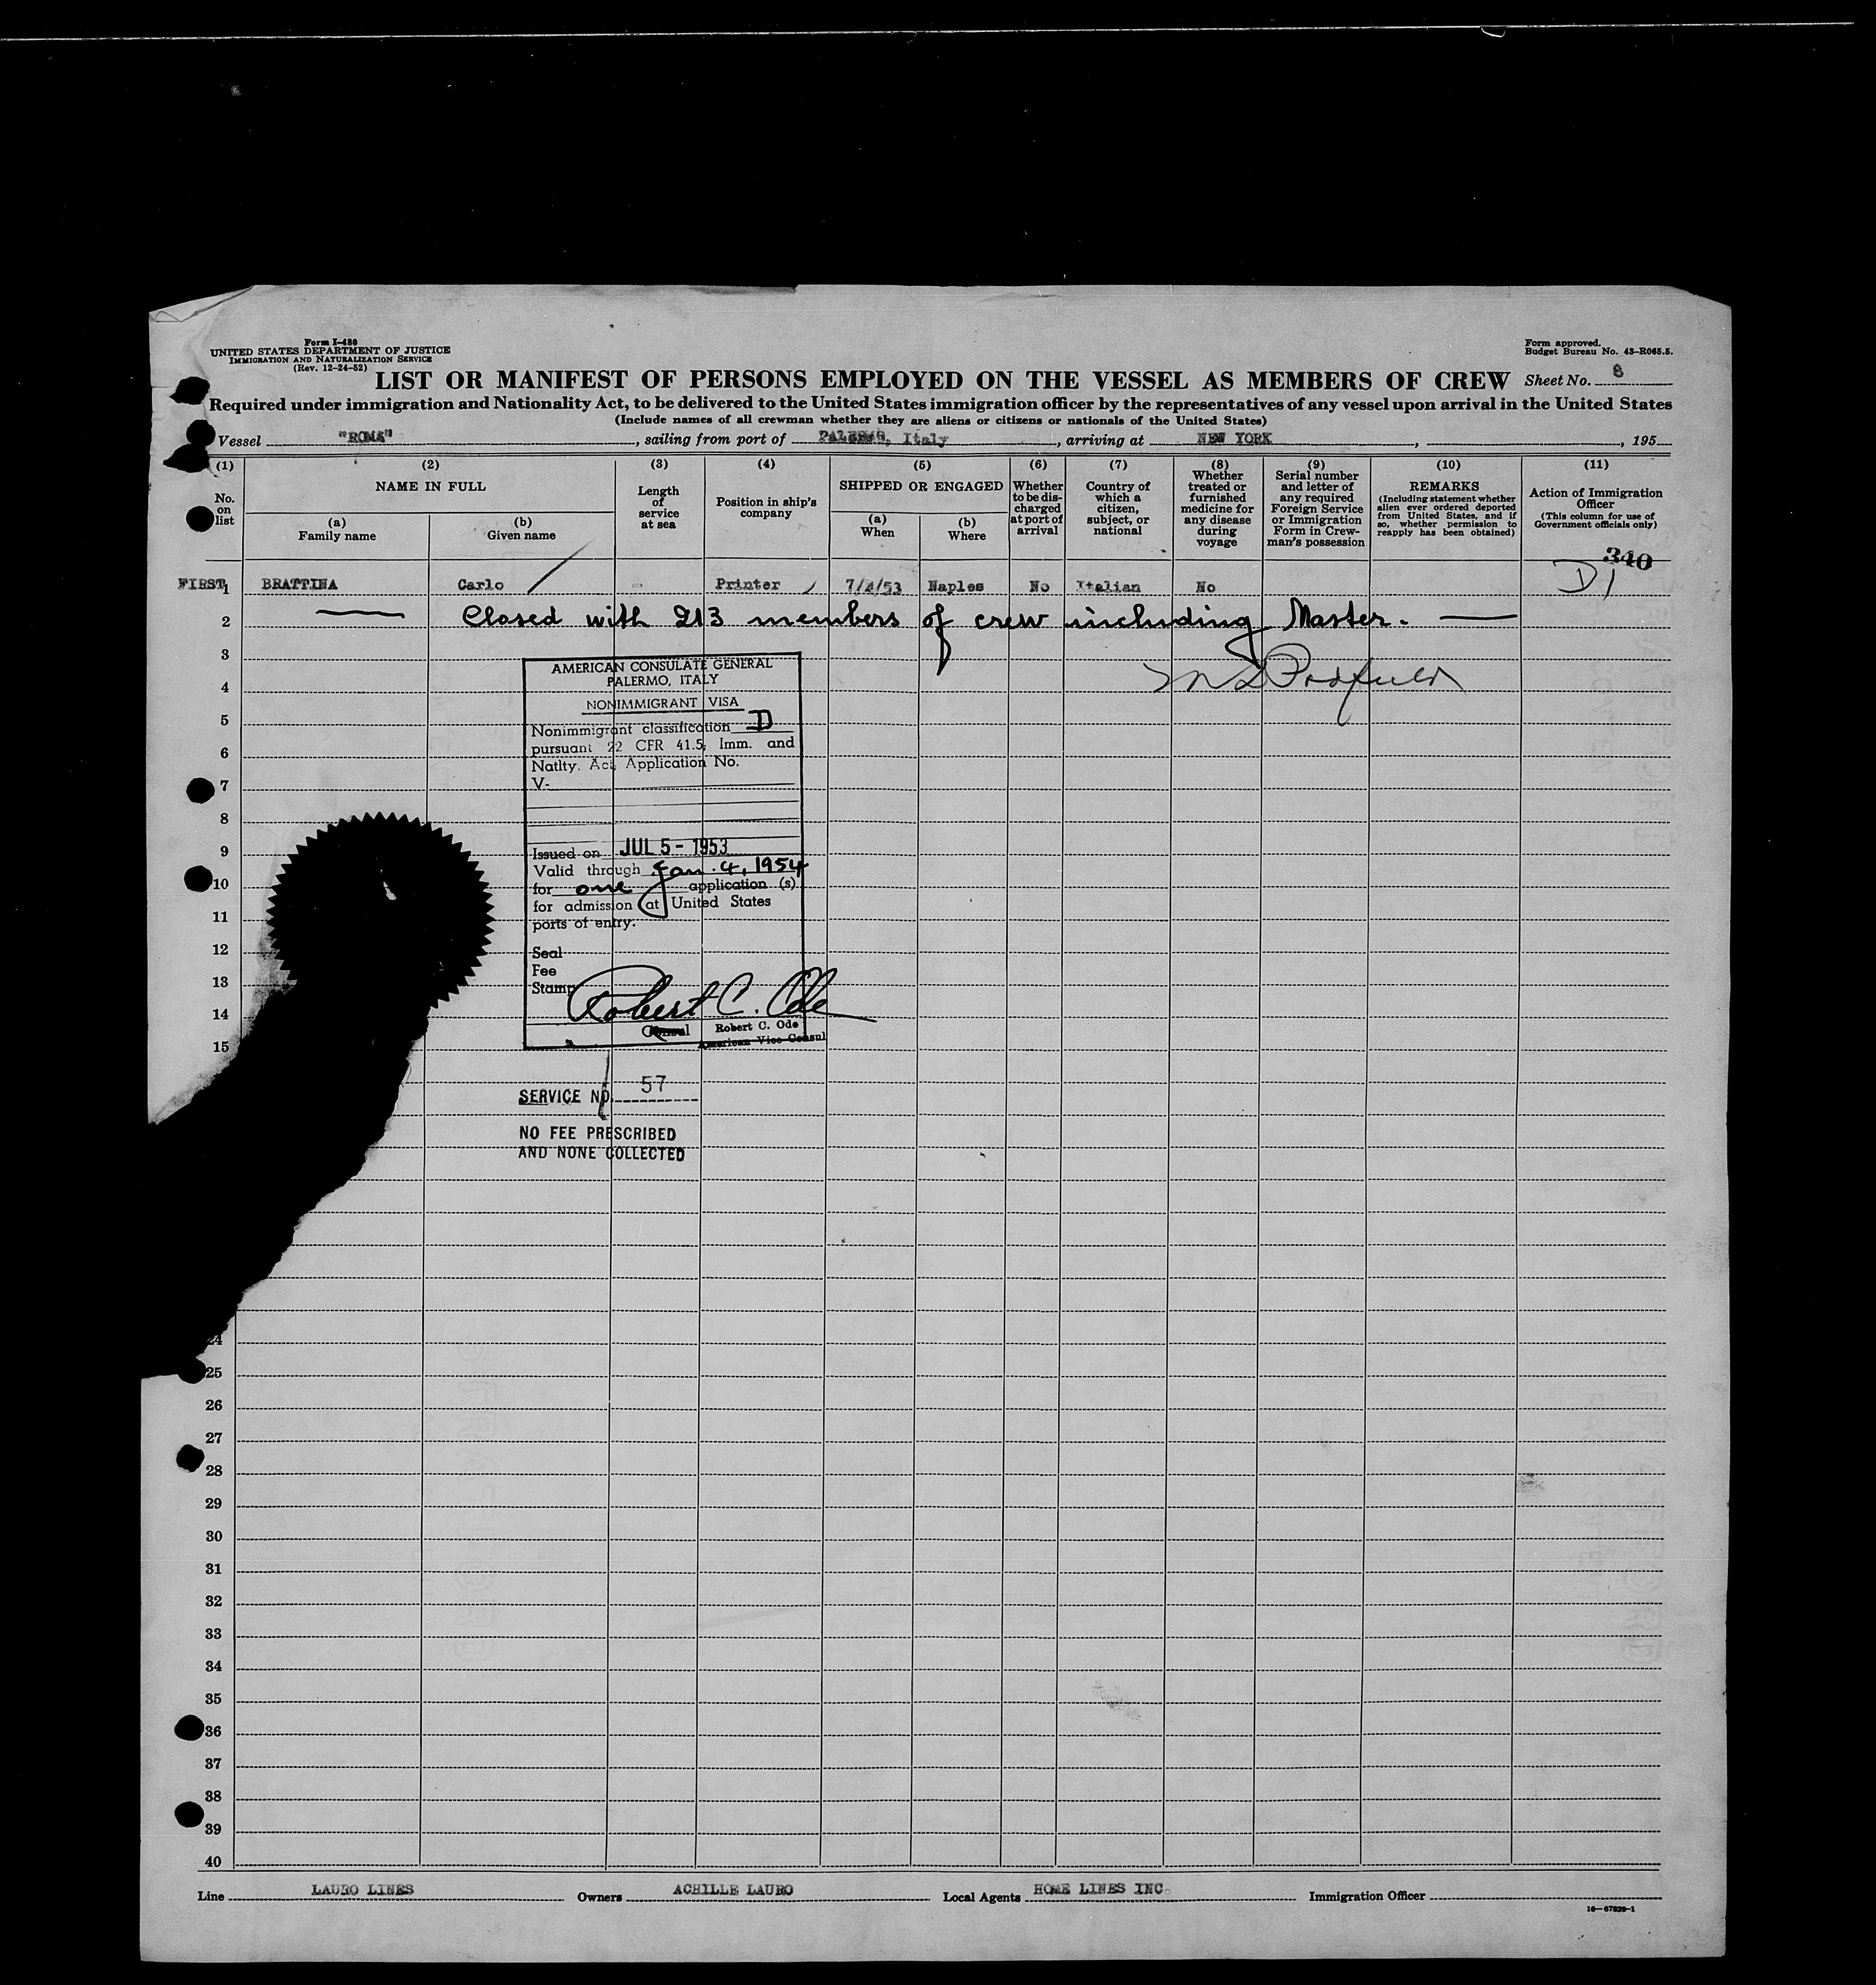 Form I-480
UNITED STATES DEPARTMENT OF JUSTICE
IMMIGRATION AND NATURALIZATION SERVICE
(Rev. 12-24-52)
Form approved.
Budget Bureau No. 43-R065.5.
LIST OR MANIFEST OF PERSONS EMPLOYED ON THE VESSEL AS MEMBERS OF CREW Sheet No. 8
Required under immigration and Nationality Act, to be delivered to the United States immigration officer by the representatives of any vessel upon arrival in the United States
(Include names of all crewman whether they are aliens or citizens or nationals of the United States)
Vessel "ROMA", sailing from port of PALERMO, Italy, arriving at NEW YORK, , 195
(1) (2) (3) (4) (5) (6) (7) (8) (9) (10) (11)
No. on list
NAME IN FULL
(a) Family name
(b) Given name
Length of service at sea
Position in ship's company
SHIPPED OR ENGAGED
(a) When
(b) Where
Whether to be discharged at port of arrival
Country of which a citizen, subject, or national
Whether treated or furnished medicine for any disease during voyage
Serial number and letter of any required Foreign Service or Immigration Form in Crewman's possession
REMARKS
(Including statement whether alien ever ordered deported from United States, and if so, whether permission to reapply has been obtained)
Action of Immigration Officer
(This column for use of Government officials only)
340
FIRST 1 BRATTINA Carlo Printer 7/ /53 Naples No Italian No D1
2 Closed with 213 members of crew including Master.
3
4
5
6
7
8
9
10
11
12
13
14
15
AMERICAN CONSULATE GENERAL
PALERMO, ITALY
NONIMMIGRANT VISA
Nonimmigrant classification D
pursuant 22 CFR 41.5, Imm. and
Natlty. Act, Application No.
V-
Issued on JUL 5 - 1953
Valid through Jan. 4, 1954
for one application (s)
for admission at United States
ports of entry.
Seal
Fee
Stamp
Robert C. Ode
Consul Robert C. Ode
American Vice Consul
SERVICE NO. 57
NO FEE PRESCRIBED
AND NONE COLLECTED
24
25
26
27
28
29
30
31
32
33
34
35
36
37
38
39
40
Line LAURO LINES Owners ACHILLE LAURO Local Agents HOME LINES INC. Immigration Officer
16-67829-1